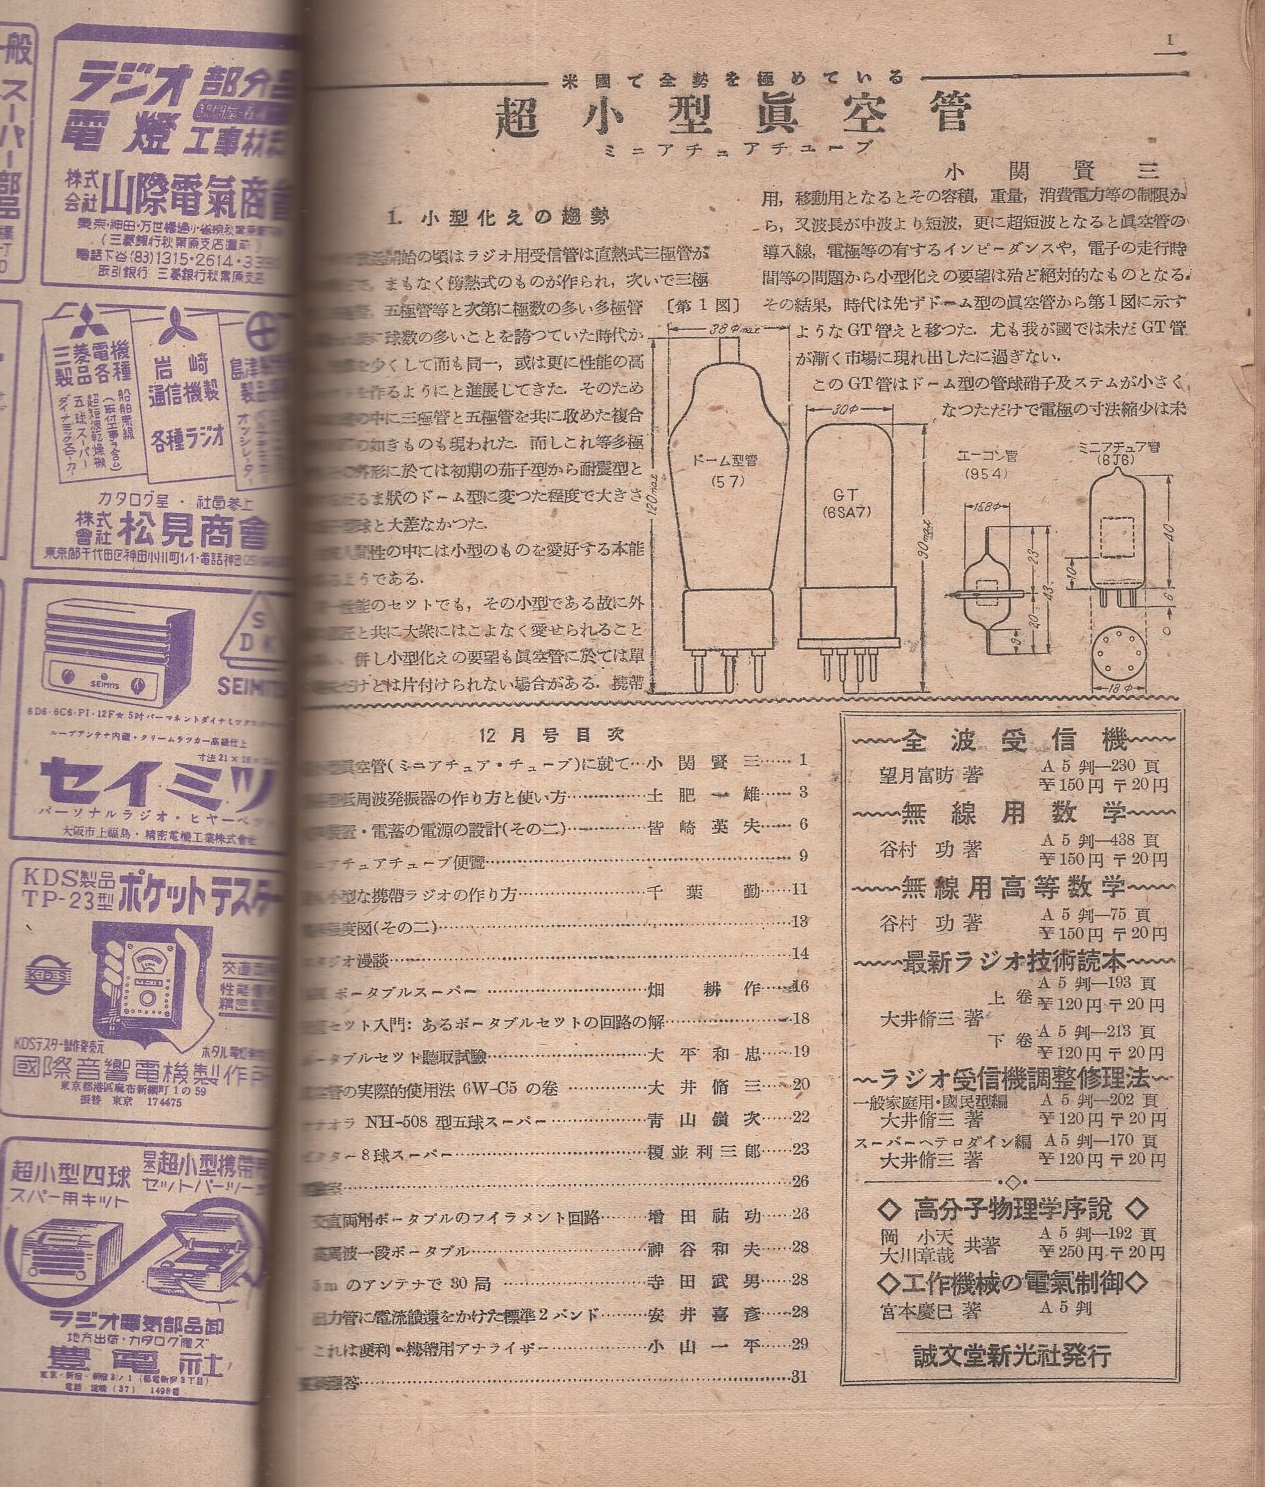 般
スーパー部品
ラジオ 部分品
電燈 工事材料
株式会社 山際電氣商會
東京・神田・万世橋通
(三菱銀行秋葉原支店
電話下谷(83)1315・2614・33
取引銀行 三菱銀行秋葉原支店
三菱電機
製品各種
船舶無線
五球スーパー
ダイナミックスピーカー
岩崎
通信機製
各種ラジオ
島津製
カタログ呈・社名参上
株式會社 松見商會
東京都千代田区神田小川町
SDK
SEIMITS
SEIMITS
6D6・6C6・P1・12F☆5吋パーマネントダイナミック
ループアンテナ内蔵・クリームラッカー高級仕上
寸法21×
セイミツ
パーソナルラジオ・ヒヤーベ
大阪市上福島・精密電機工業株式會
KDS製品
TP-23型 ポケットテスター
KDS
交直両
性能
精密堅
KDSテスター製作発売元
國際音響電機製作所
東京都港區麻布新網町1の59
振替 東京 174675
超小型四球
スパー用キット
超小型携帶
セットパーツ一
ラジオ電気部品卸
地方出荷・カタログ贈ス
豊電社
東京・新宿・新宿3ノ1(都電新宿3丁目)
電話 淀橋(37) 1498番
1
米國で全勢を極めている
超小型眞空管
ミニアチュアチューブ
小関賢三
1. 小型化えの趨勢
開始の頃はラジオ用受信管は直熱式三極管が
、まもなく傍熱式のものが作られ，次いで三極
五極管等と次第に極数の多い多極管
球数の多いことを誇つていた時代か
を少くして而も同一，或は更に性能の高
を作るようにと進展してきた．そのため
の中に三極管と五極管を共に收めた複合
の如きものも現われた．而しこれ等多極
外形に於ては初期の茄子型から耐震型と
るま狀のドーム型に変つた程度で大きさ
球と大差なかつた．
性の中には小型のものを愛好する本能
ようである．
能のセットでも，その小型である故に外
と共に大衆にはこよなく愛せられること
、併し小型化えの要望も眞空管に於ては單
とは片付けられない場合がある．携帶
用，移動用となるとその容積，重量，消費電力等の制限か
ら，又波長が中波より短波，更に超短波となると眞空管の
導入線，電極等の有するインピーダンスや，電子の走行時
間等の問題から小型化えの要望は殆ど絶対的なものとなる．
その結果，時代は先ずドーム型の眞空管から第1図に示す
ようなGT管えと移つた．尤も我が國では未だGT管
が漸く市場に現れ出したに過ぎない．
このGT管はドーム型の管球硝子及ステムが小さく
なつただけで電極の寸法縮少は未
〔第1図〕
38φmax
120max
ドーム型管
(57)
30φ
GT
(6SA7)
90max
エーコン管
(954)
15.8φ
23
20
43
ミニアチュア管
(6J6)
40
10
6
18φ
12月号目次
眞空管(ミニアチュア・チューブ)に就て…小関賢三……1
低周波発振器の作り方と使い方…………土肥一雄……3
裝置・電蓄の電源の設計(その二)…………皆崎英夫……6
アチュアチューブ便覽……9
小型な携帶ラジオの作り方…………千葉勤……11
度図(その二)……13
ジオ漫談……14
ポータブルスーパー…………畑耕作……16
セット入門：あるポータブルセットの回路の解……18
ータブルセット聽取試驗…………大平和忠……19
の実際的使用法 6W-C5の巻…………大井脩三……20
オラ NH-508型五球スーパー…………青山嶺次……22
ター8球スーパー…………榎並利三郎……23
室……26
交直両用ポータブルのフイラメント回路……増田祐功……26
高周波一段ポータブル…………神谷和夫……28
5mのアンテナで30局…………寺田武男……28
出力管に電流饋還をかけた標準2バンド……安井喜彦……28
これは便利・携帶用アナライザー……小山一平……29
答……31
全波受信機
望月富昉 著 A5判—230頁 ￥150円〒20円
無線用数学
谷村功 著 A5判—438頁 ￥150円〒20円
無線用高等数学
谷村功 著 A5判—75頁 ￥150円〒20円
最新ラジオ技術読本
大井脩三 著
上巻 A5判—193頁 ￥120円〒20円
下巻 A5判—213頁 ￥120円〒20円
ラジオ受信機調整修理法
一般家庭用・國民型編 A5判—202頁
大井脩三 著 ￥120円〒20円
スーパーヘテロダイン編 A5判—170頁
大井脩三 著 ￥120円〒20円
◇高分子物理学序説◇
岡小天 大川章哉 共著 A5判—192頁 ￥250円〒20円
◇工作機械の電氣制御◇
宮本慶巳 著 A5判
誠文堂新光社発行